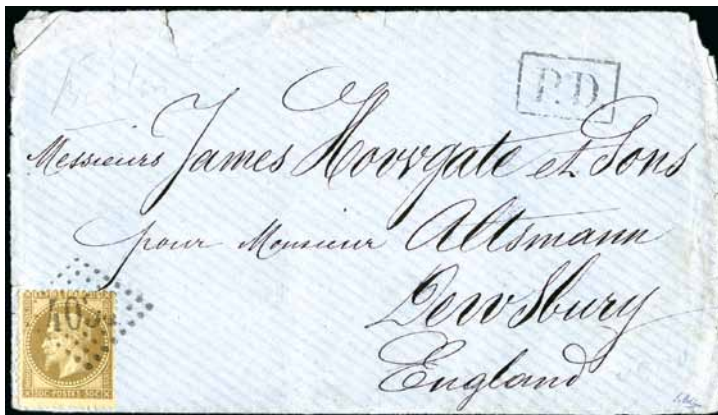 P.D
Messieurs James Howgate et Sons
pour Monsieur Altsmann
Dewsbury
England
30C POSTES 30C